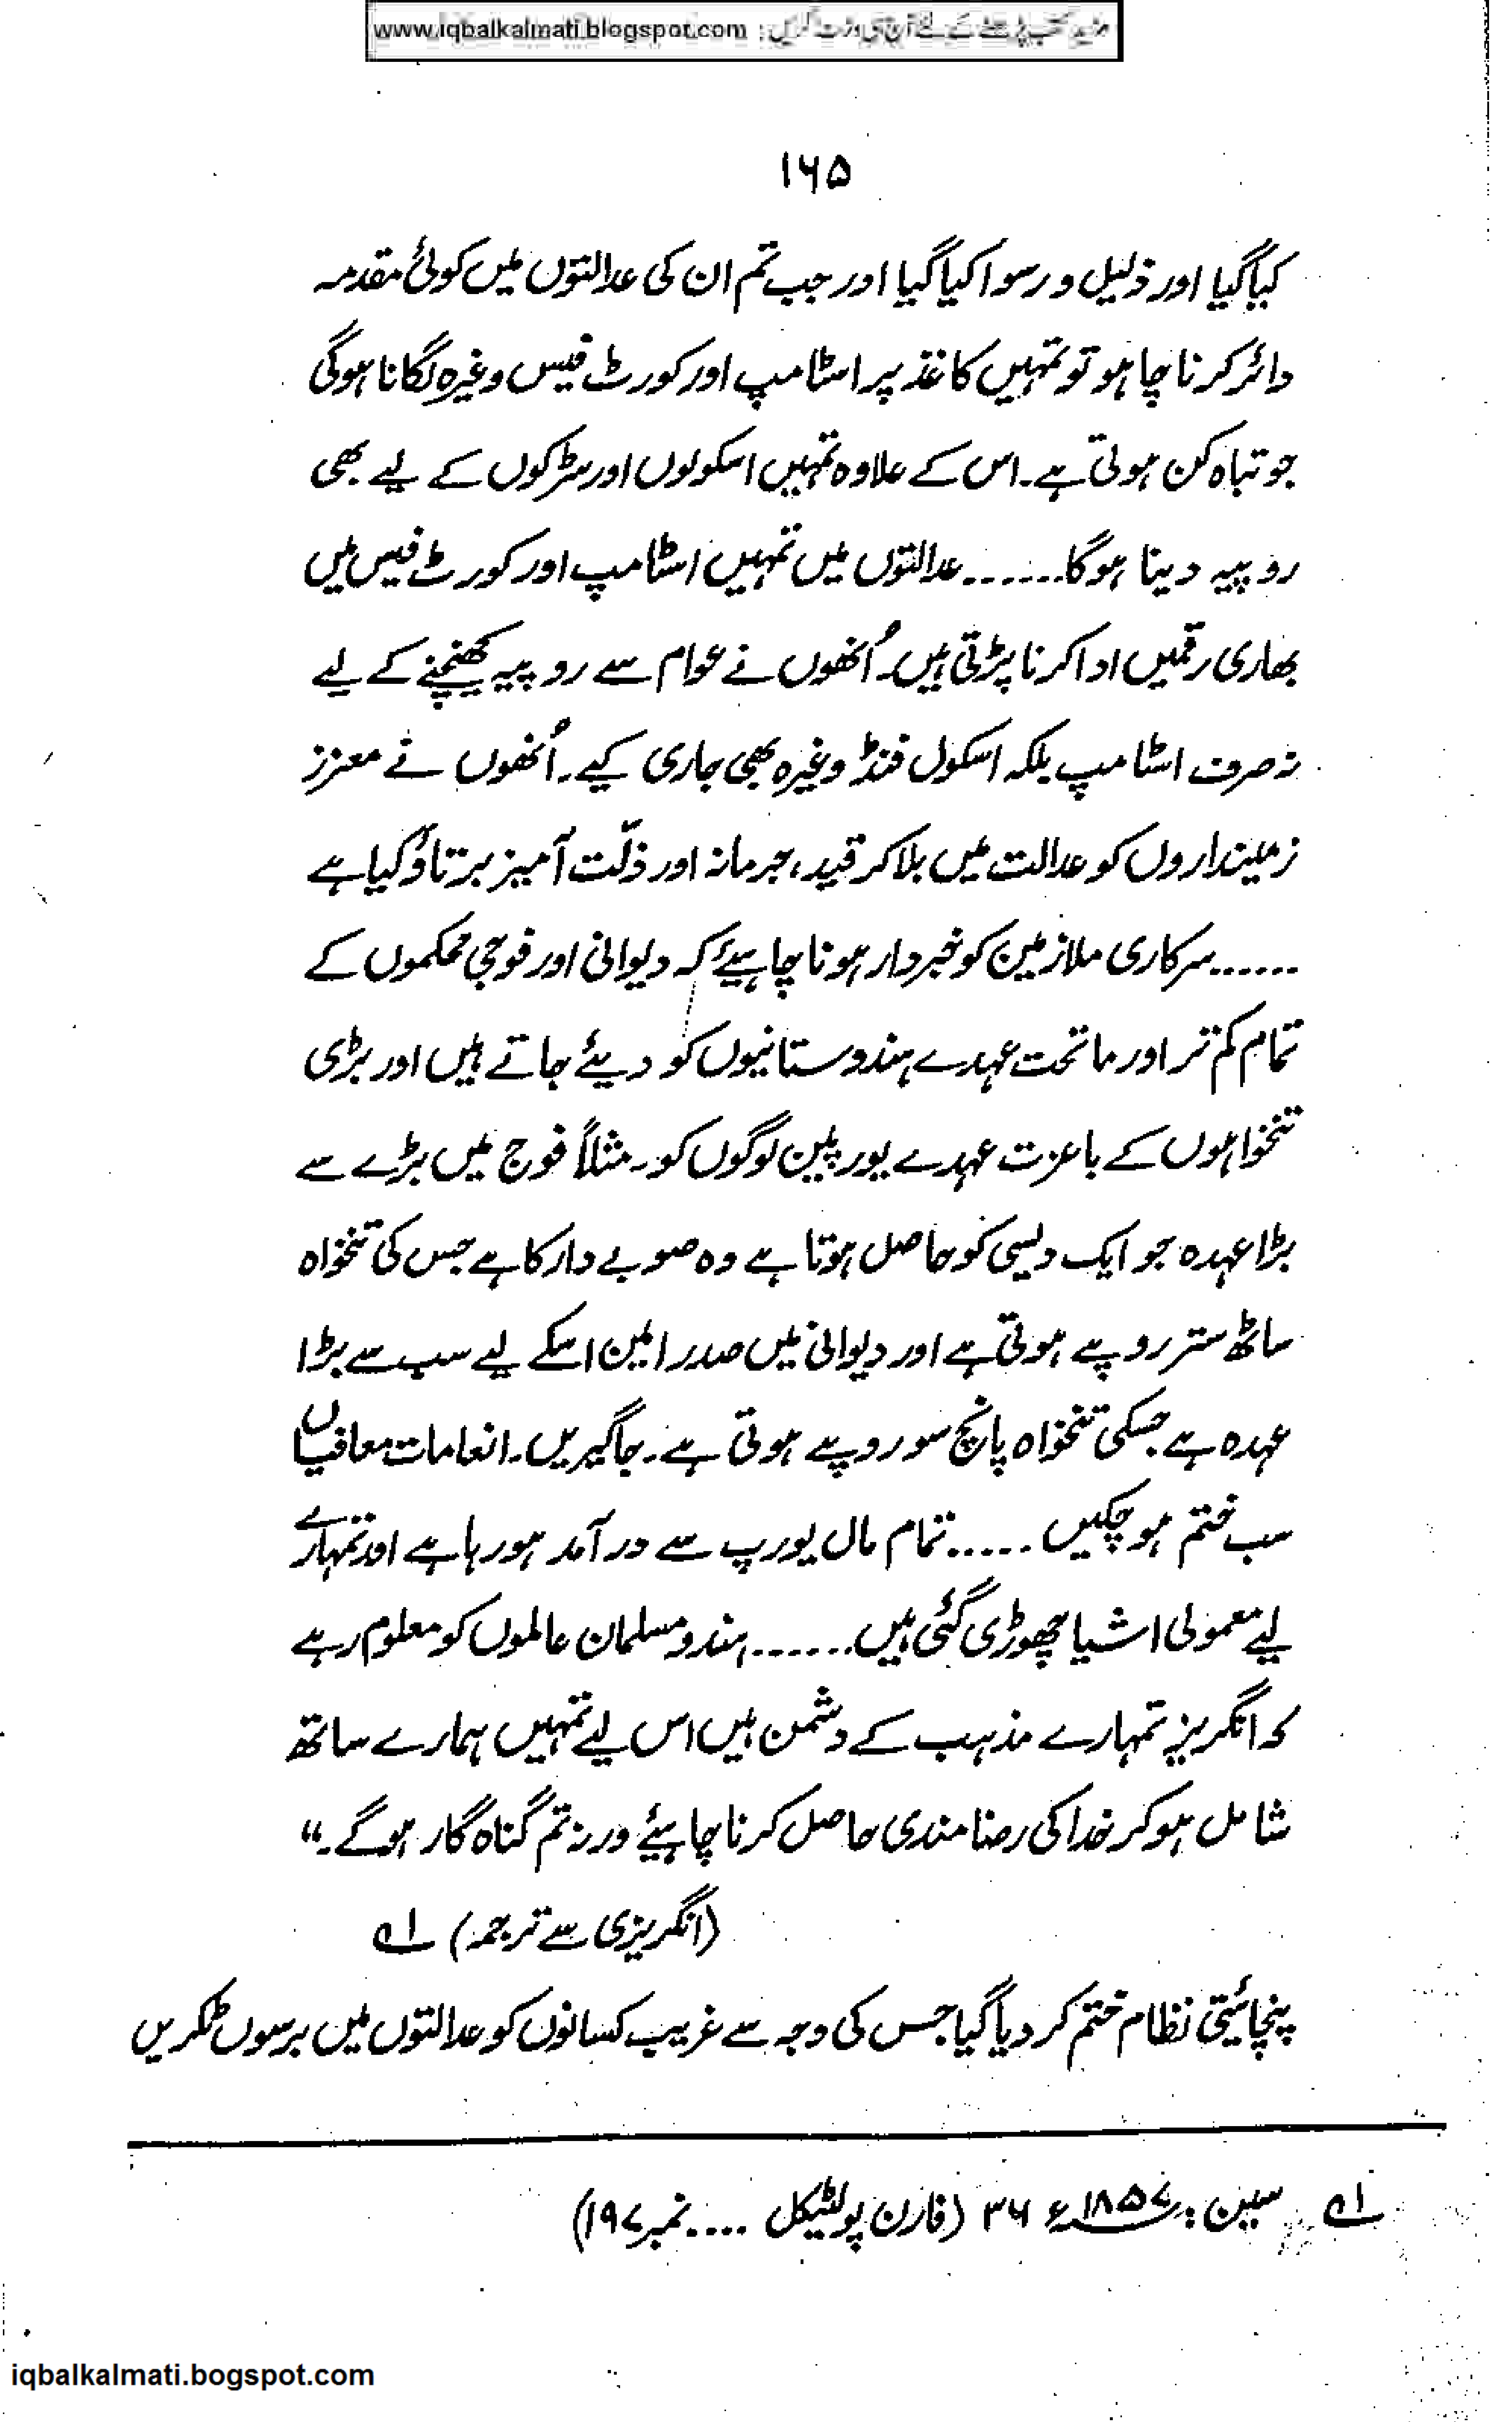 مزید کتب پڑھنے کے لئے آج ہی وزٹ کریں : www.iqbalkalmati.blogspot.com
۱۶۵
کیا گیا اور ذلیل و رسوا کیا گیا اور جب تم ان کی عدالتوں میں کوئی مقدمہ
دائر کرنا چاہو تو تمہیں کاغذ پر اسٹامپ اور کورٹ فیس وغیرہ لگانا ہوگی
جو تباہ کن ہوتی ہے۔ اس کے علاوہ تمہیں اسکولوں اور سڑکوں کے لیے بھی
روپیہ دینا ہوگا...... عدالتوں میں تمہیں اسٹامپ اور کورٹ فیس میں
بھاری رقمیں ادا کرنا پڑتی ہیں۔ اُنھوں نے عوام سے روپیہ کھینچنے کے لیے
نہ صرف اسٹامپ بلکہ اسکول فنڈ وغیرہ بھی جاری کیے۔ اُنھوں نے معزز
زمینداروں کو عدالت میں بلا کر قید، جرمانہ اور ذلّت آمیز برتاؤ کیا ہے
...... سرکاری ملازمین کو خبردار ہونا چاہیئے کہ دیوانی اور فوجی محکموں کے
تمام کم تر اور ماتحت عہدے ہندوستانیوں کو دیئے جاتے ہیں اور بڑی
تنخواہوں کے باعزت عہدے یورپین لوگوں کو۔ مثلاً فوج میں بڑے سے
بڑا عہدہ جو ایک دیسی کو حاصل ہوتا ہے وہ صوبے دار کا ہے جس کی تنخواہ
ساٹھ ستر روپے ہوتی ہے اور دیوانی میں صدر امین اسکے لیے سب سے بڑا
عہدہ ہے جسکی تنخواہ پانچ سو روپے ہوتی ہے۔ جاگیریں۔ انعامات معافیاں
سب ختم ہو چکیں ..... تمام مال یورپ سے درآمد ہو رہا ہے اور تمہارے
لیے معمولی اشیا چھوڑی گئی ہیں...... ہندو مسلمان عالموں کو معلوم رہے
کہ انگریز تمہارے مذہب کے دشمن ہیں اس لیے تمہیں ہمارے ساتھ
شامل ہو کر خدا کی رضامندی حاصل کرنا چاہیئے ورنہ تم گناہ گار ہوگے۔"
(انگریزی سے ترجمہ) ۱ے
پنچائیتی نظام ختم کر دیا گیا جس کی وجہ سے غریب کسانوں کو عدالتوں میں برسوں ٹکریں
۱ے سین: ۱۸۵۷ء ۳۶ (فارن پولٹیکل .... نمبر ۱۹۷)
iqbalkalmati.bogspot.com